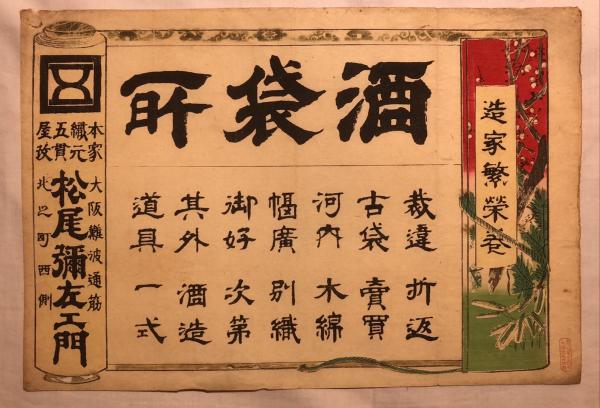 造家繁榮
酒袋所
裁違 折返
古袋 賣買
河内 木綿
幅廣 別織
御好 次第
其外 酒造
道具 一式
本家
織元
五貫
屋
大阪難波通筋
松尾彌左エ門
北之町西側